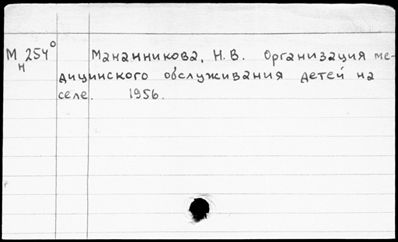 М 254° Мананникова, Н.В. Организация ме-
н дицинского обслуживания детей на
селе. 1956.